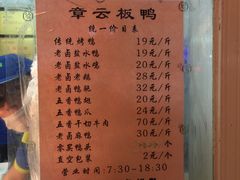 章云板鸭
统一价目表
传统烤鸭 19元/斤
老卤盐水鸭 19元/斤
老卤盐水鸡 20元/斤
老卤老鹅 28元/斤
老卤鸭肫 32元/斤
五香鸭翅 28元/斤
五香鸭爪 24元/斤
五香干切牛肉 70元/斤
老卤麻鸭 30元/斤
零买鸭头 个
真空包装 2元/个
营业时间:7:30-18:30